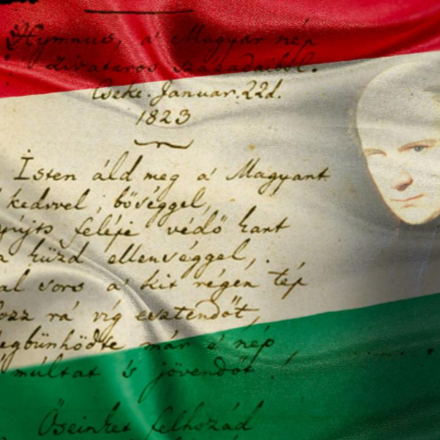 Hymnus, a' Magyar nép
zivataros századaiból.
Cseke. Januar. 22d.
1823
Isten áld meg a' Magyart
kedvvel, bőséggel,
felèje védő kart
küzd ellenséggel,
sors a' kit régen tép
rá víg esztendőt,
már e' nép
múltat 's jövendőt!
Őseinket felhozád